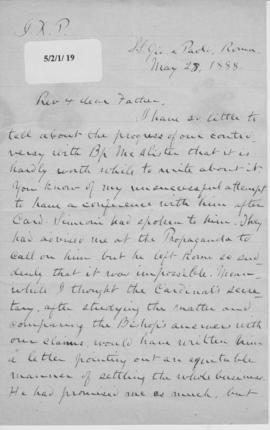 J. X. P.
5/2/1/19
SS. Gio. e Paolo, Roma.
May 23, 1888.
Rev. & dear Father,
I have so little to
tell about the progress of our contro-
versy with Bp McAlister that it is
hardly worth while to write about it.
You know of my unsuccessful attempt
to have a conference with him after
Card. Simeoni had spoken to him. They
had advised me at the Propaganda to
call on him but he left Rome so sud-
denly that it was impossible. Mean-
while I thought the Cardinal's secre-
tary, after studying the matter and
comparing the Bishop's answer with
our claims, would have written him
a letter pointing out an equitable
manner of settling the whole business.
He had promised me as much, but